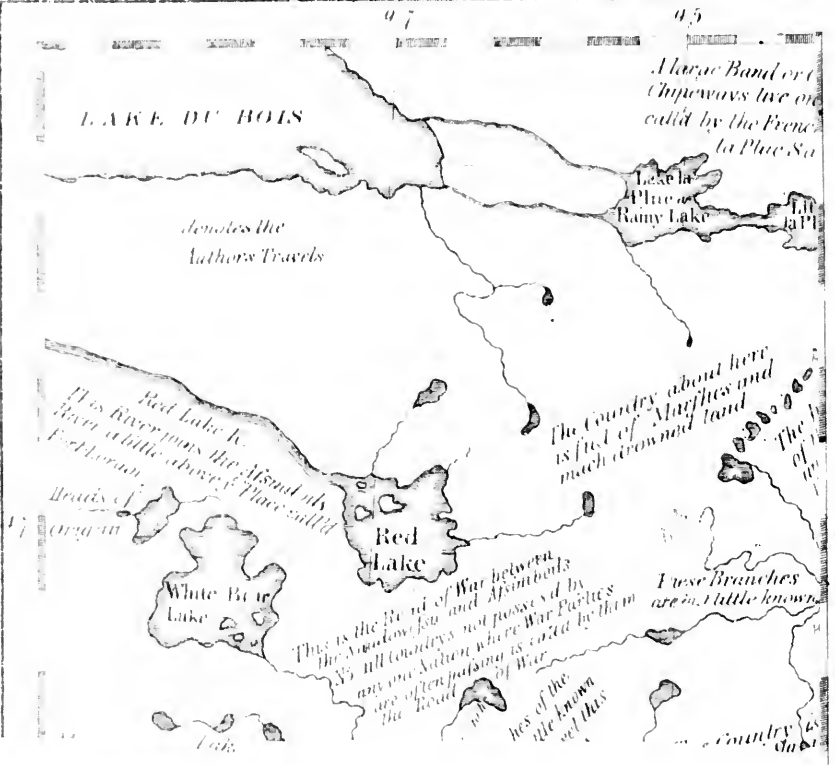 97
95
A large Band or
Chipeways live on
call'd by the French
la Plue
LAKE DU BOIS
Lake la
Plue or
Rainy Lake
Lit
la Pl
denotes the
Authors Travels
The Country about here
is full of Marshes and
much drowned land
Red Lake R.
This River joins the
River a little above Place call'd
Fort
Heads of
Origan
Red
Lake
White Bear
Lake
The
of
This is the Road of War between
the and Assiniboils
all Countrys not possess'd by
any one Nation where War Parties
are often passing is call'd by them
the Road of War
These Branches
are but little known
hes of the
tle known
yet this
Lak
Country is